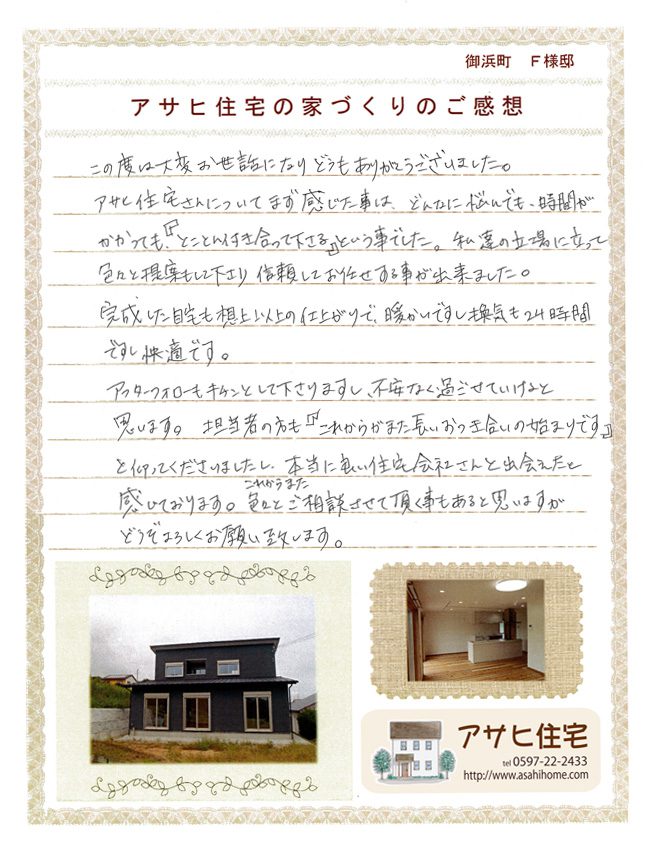 御浜町　F様邸
アサヒ住宅の家づくりのご感想
この度は大変お世話になりどうもありがとうございました。
アサヒ住宅さんについてまず感じた事は、どんなに悩んでも、時間が
かかっても、「とことん付き合って下さる」という事でした。私達の立場に立って
色々と提案もして下さり信頼してお任せする事が出来ました。
完成した自宅も想像以上の仕上がりで、暖かいですし換気も24時間
ですし快適です。
アフターフォローもキチンとして下さりますし、不安なく過ごせていけると
思います。担当者の方も「これからがまた長いおつき合いの始まりです」
と仰ってくださいましたし、本当に良い住宅会社さんと出会えたと
これからまた
感じております。色々とご相談させて頂く事もあると思いますが
どうぞよろしくお願い致します。
アサヒ住宅
tel 0597-22-2433
http://www.asahihome.com